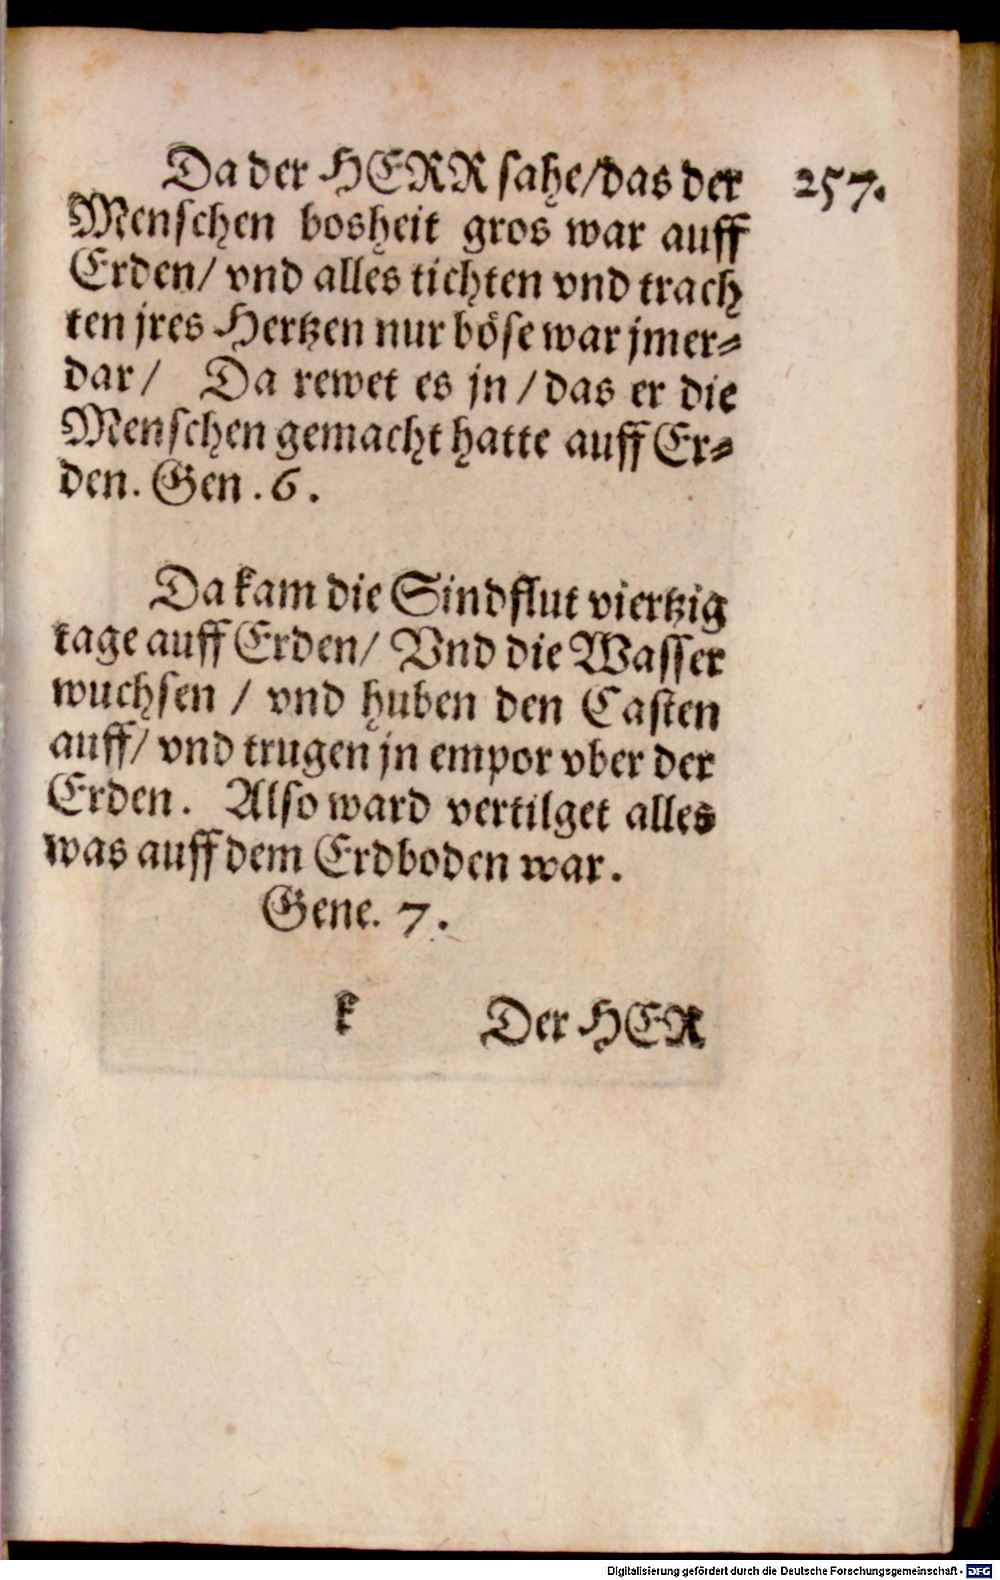 Da der HERR sahe/das der
257.
Menschen bosheit gros war auff
Erden/ vnd alles tichten vnd trach
ten jres Hertzen nur böse war jmer=
dar/ Da rewet es jn/das er die
Menschen gemacht hatte auff Er=
den. Gen. 6.
Da kam die Sindflut viertzig
tage auff Erden/ Vnd die Wasser
wuchsen / vnd huben den Casten
auff/ vnd trugen jn empor vber der
Erden. Also ward vertilget alles
was auff dem Erdboden war.
Gene. 7.
k Der HER
Digitalisierung gefördert durch die Deutsche Forschungsgemeinschaft - DFG